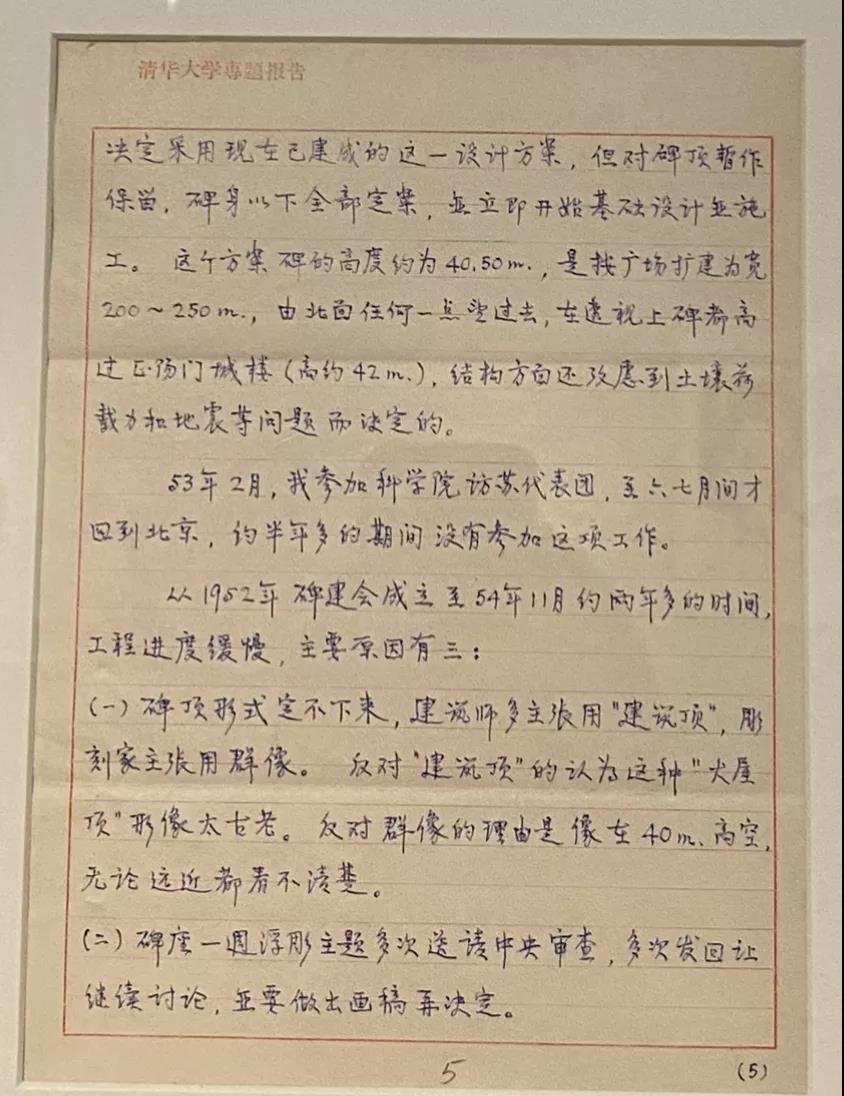 清华大学專題报告
决定采用现在已建成的这一设计方案，但对碑顶暂作
保畄，碑身以下全部定案，並立即开始基础设计並施
工。 这个方案碑的高度约为40.50m.，是按广场扩建为宽
200～250m.，由北面任何一点望过去，在透视上碑都高
过正阳门城楼（高约42m.），结构方面还攷慮到土壤荷
载力和地震等问题而决定的。
53年2月，我参加科学院访苏代表团，至六七月间才
回到北京，约半年多的期间没有参加这项工作。
从1952年碑建会成立至54年11月约两年多的时间，
工程进度缓慢，主要原因有三：
（一）碑顶形式定不下来，建筑师多主张用"建筑顶"，彫
刻家主张用群像。 反对"建筑顶"的认为这种"大屋
顶"形像太古老。反对群像的理由是像在40m.高空，
无论远近都看不清楚。
（二）碑座一週浮彫主题多次送请中央审查，多次发回让
继续讨论，並要做出画稿再决定。
5
(5)